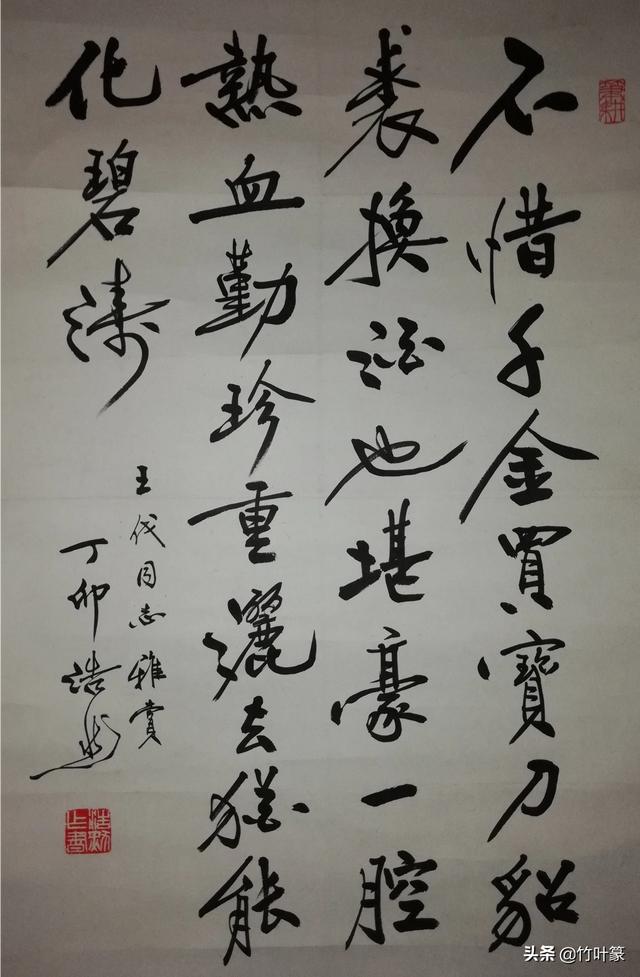 不惜千金買寶刀貂
裘換酒也堪豪一腔
熱血勤珍重灑去猶能
化碧濤
王代同志雅賞
丁卯浩
头条 @竹叶篆